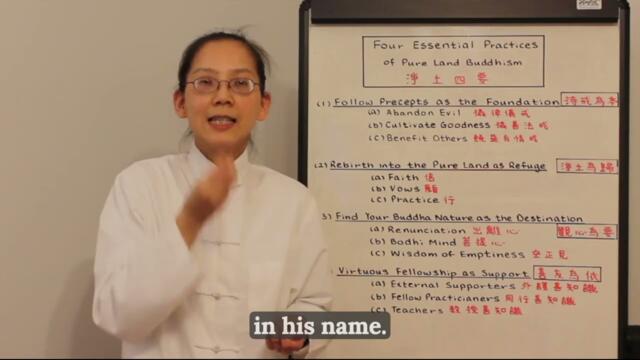 Four Essential Practices
of Pure Land Buddhism
淨土四要
(1) Follow Precepts as the Foundation 持戒為本
(a) Abandon Evil 儀律儀戒
(b) Cultivate Goodness 儀善法戒
(c) Benefit Others 饒益有情戒
(2) Rebirth into the Pure Land as Refuge 淨土為歸
(a) Faith 信
(b) Vows 願
(c) Practice 行
3) Find Your Buddha Nature as the Destination
(a) Renunciation 出離心 觀心為要
(b) Bodhi Mind 菩提心
(c) Wisdom of Emptiness 空正見
Virtuous Fellowship as Support 善友為依
(a) External Supporters 外護善知識
(b) Fellow Practicianers 同行善知識
(c) Teachers 教授善知識
in his name.